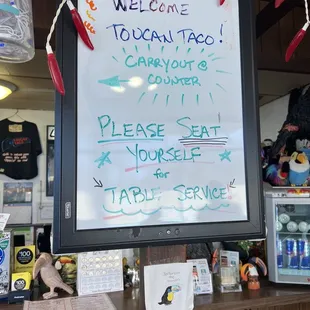 WELCOME
TOUCAN TACO!
CARRYOUT @
COUNTER
PLEASE SEAT
YOURSELF
for
TABLE SERVICE
100
100